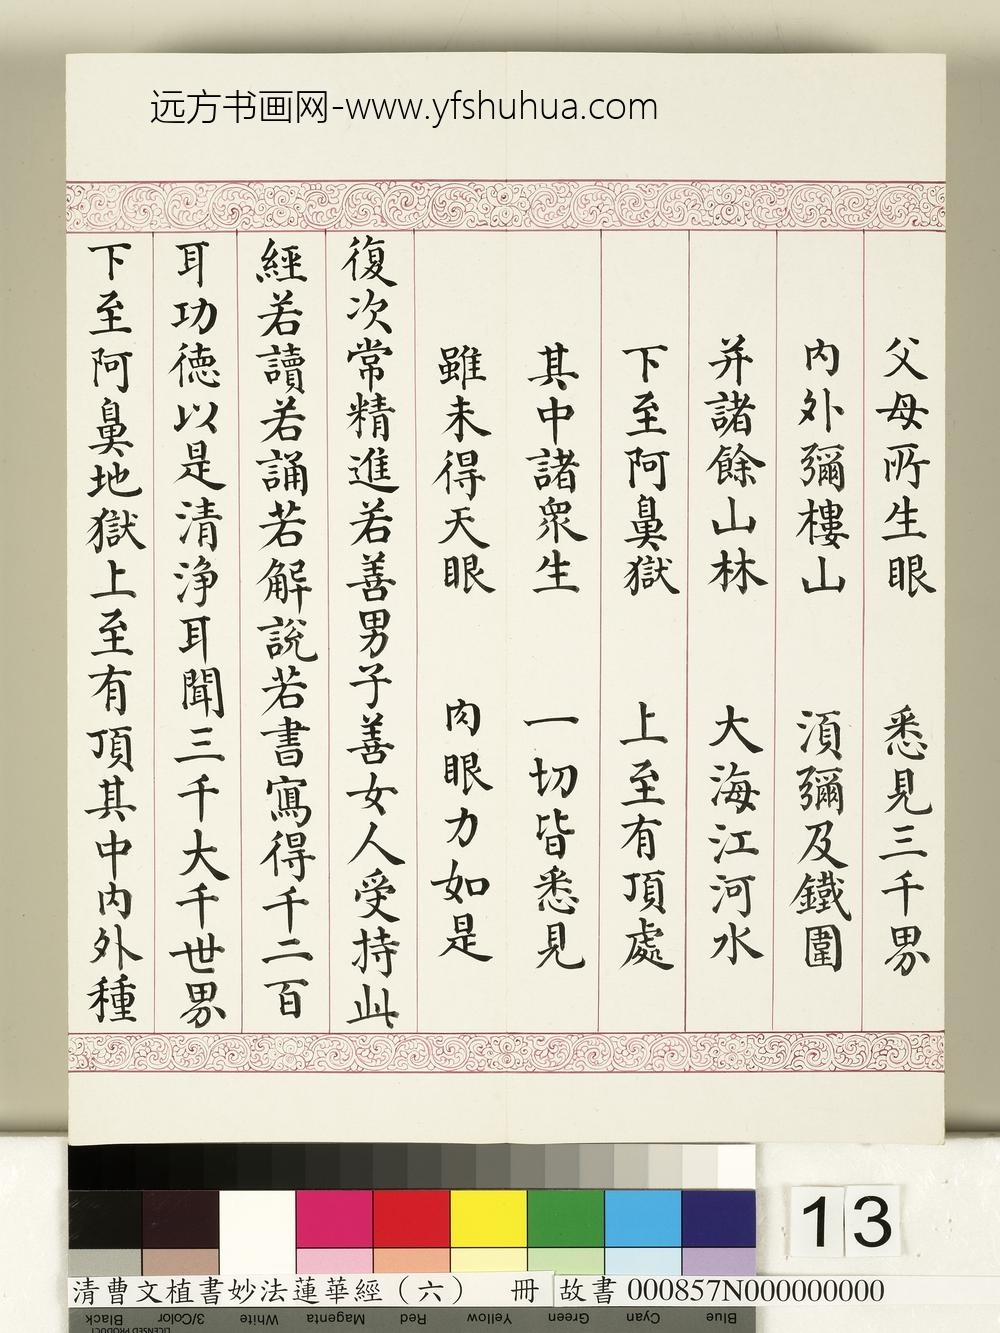 远方书画网-www.yfshuhua.com
父母所生眼 悉見三千界
內外彌樓山 須彌及鐵圍
并諸餘山林 大海江河水
下至阿鼻獄 上至有頂處
其中諸眾生 一切皆悉見
雖未得天眼 肉眼力如是
復次常精進若善男子善女人受持此
經若讀若誦若解說若書寫得千二百
耳功德以是清淨耳聞三千大千世界
下至阿鼻地獄上至有頂其中內外種
13
清曹文植書妙法蓮華經（六） 冊 故書 000857N000000000
Black 3/Color White Magenta Red Yellow Green Cyan Blue
LICENSED PRODUCT